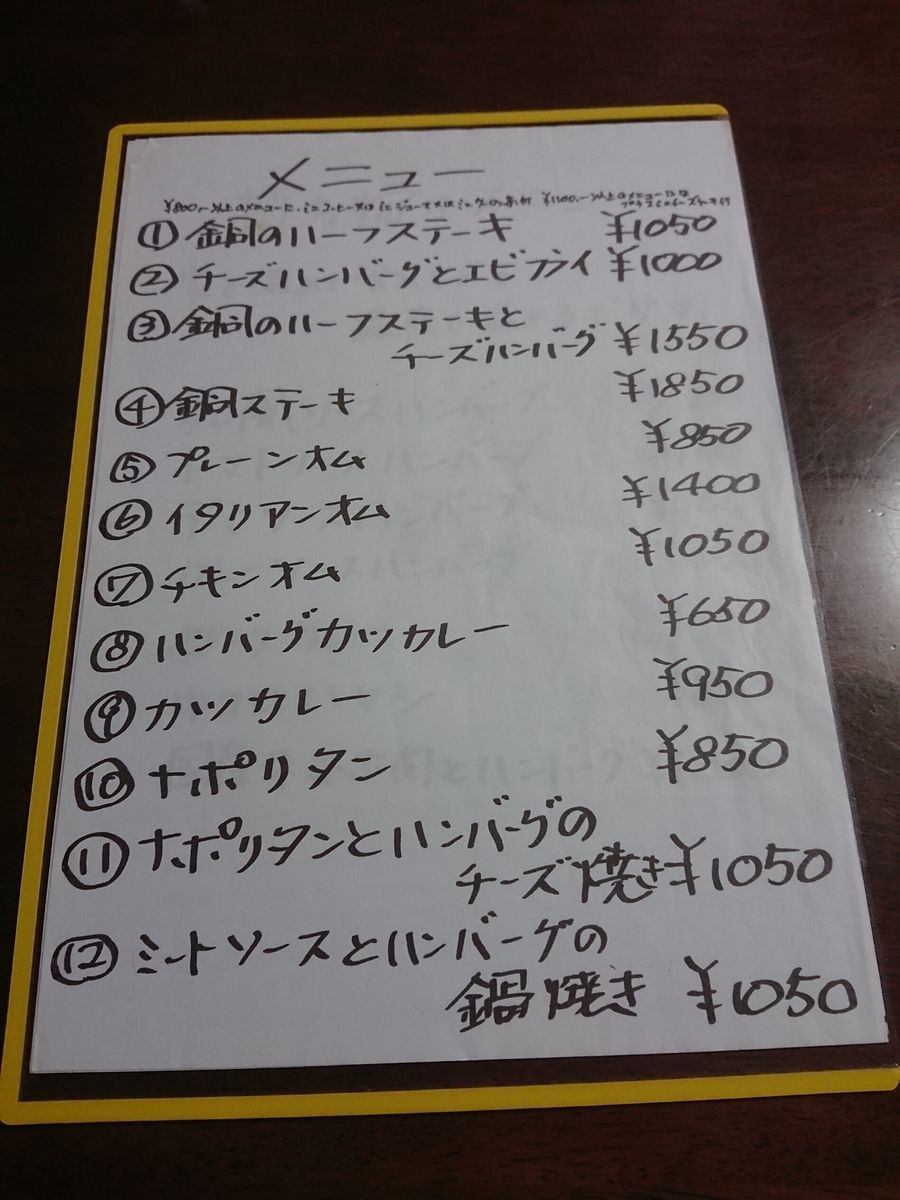 メニュー
¥800,-以上のメニューに、ミニコーヒー又はミニジュース又はミニウーロン茶付 ¥1100,-以上のメニューには
プラスミニチーズケーキ付
① 銅のハーフステーキ ¥1050
② チーズハンバーグとエビフライ ¥1000
③ 銅のハーフステーキと
チーズハンバーグ ¥1550
④ 銅ステーキ ¥1850
⑤ プレーンオム ¥850
⑥ イタリアンオム ¥1400
⑦ チキンオム ¥1050
⑧ ハンバーグカツカレー ¥650
⑨ カツカレー ¥950
⑩ ナポリタン ¥850
⑪ ナポリタンとハンバーグの
チーズ焼き ¥1050
⑫ ミートソースとハンバーグの
鍋焼き ¥1050